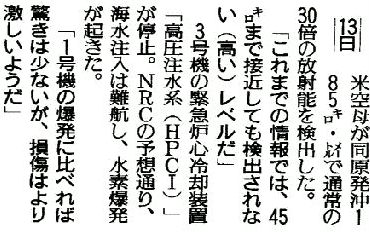 13日
米空母が同原発沖1
85㌔・㍍で通常の
30倍の放射能を検出した。
「これまでの情報では、45
㌔まで接近しても検出されな
い（高い）レベルだ」
3号機の緊急炉心冷却装置
「高圧注水系（HPCI）」
が停止。NRCの予想通り、
海水注入は難航し、水素爆発
が起きた。
「1号機の爆発に比べれば
驚きは少ないが、損傷はより
激しいようだ」